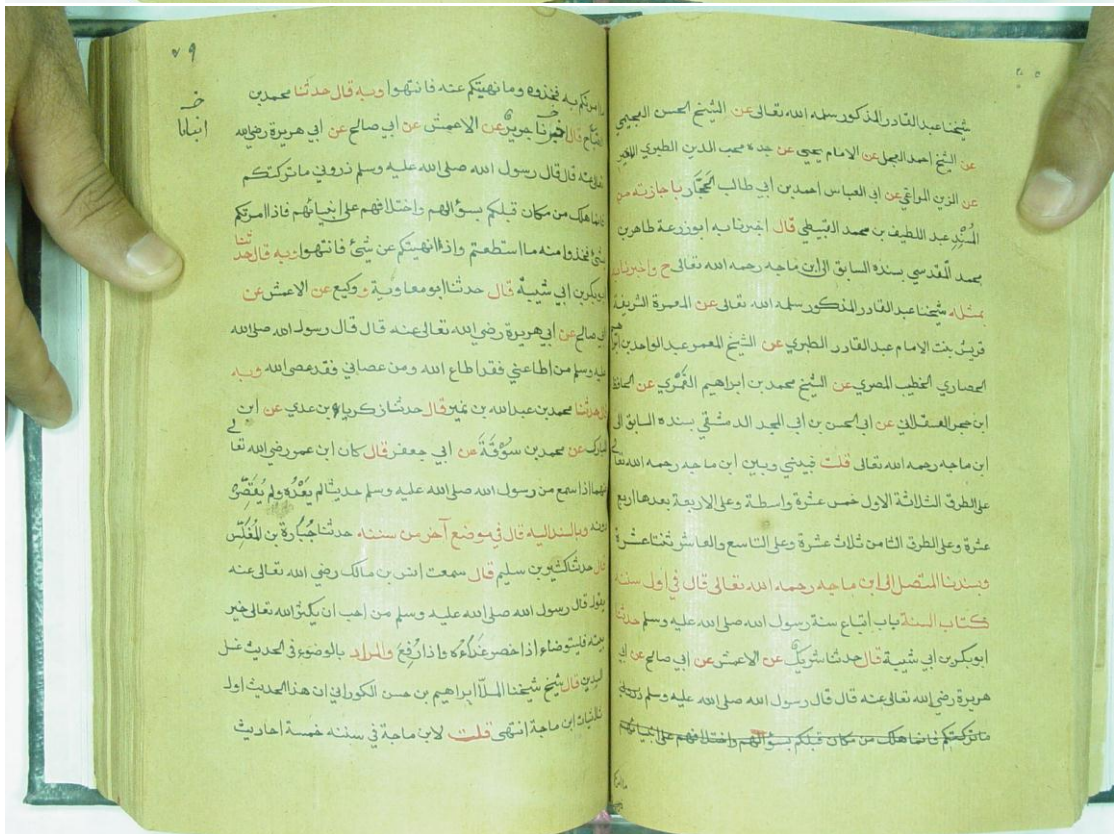 شيخنا عبد القادر المذكور سلمه الله تعالى عن الشيخ الحسن العجيمي
عن الشيخ احمد العجل عن الامام يحيى عن جده محب الدين الطبري الاخير
عن الزين المراغي عن ابي العباس احمد بن ابي طالب الحجار باجازته من
المسند عبد اللطيف بن محمد القبيطي قال اخبرنا به ابو زرعة طاهر بن
محمد المقدسي بسنده السابق الى ابن ماجه رحمه الله تعالى ح واخبرنا
بمثله شيخنا عبد القادر المذكور سلمه الله تعالى عن المعمرة الشريفة
قريش بنت الامام عبد القادر الطبري عن الشيخ المعمر عبد الواحد بن
الحصاري الخطيب المصري عن الشيخ محمد بن ابراهيم الغمري عن الحافظ
ابن حجر العسقلاني عن ابي الحسن بن ابي المجد الدمشقي بسنده السابق الى
ابن ماجه رحمه الله تعالى قلت فبيني وبين ابن ماجه رحمه الله تعالى
على الطرق الثلاثة الاول خمس عشرة واسطة وعلى الاربعة بعدها اربع
عشرة وعلى الطرق الثامن ثلاث عشرة وعلى التاسع والعاشر ثنتا عشرة
وبسندنا المتصل الى ابن ماجه رحمه الله تعالى قال في اول سننه
كتاب السنة باب اتباع سنة رسول الله صلى الله عليه وسلم حدثنا
ابو بكر بن ابي شيبة قال حدثنا شريك عن الاعمش عن ابي صالح عن ابي
هريرة رضي الله تعالى عنه قال قال رسول الله صلى الله عليه وسلم
ما تركتكم فانما هلك من مكان قبلكم بسؤالهم واختلافهم على انبيائهم
٧٩
ما امرتكم به فخذوه وما نهيتكم عنه فانتهوا وبه قال حدثنا محمد بن
الصباح قال اخبرنا جرير عن الاعمش عن ابي صالح عن ابي هريرة رضي الله
خـ
انبانا
تعالى عنه قال قال رسول الله صلى الله عليه وسلم ذروني ما تركتكم
فانما هلك من مكان قبلكم بسؤالهم واختلافهم على انبيائهم فاذا امرتكم
بشئ فخذوا منه ما استطعتم واذا انهيتكم عن شيئ فانتهوا وبه قال حدثنا
ابو بكر بن ابي شيبة قال حدثنا ابو معاوية ووكيع عن الاعمش عن
ابي صالح عن ابي هريرة رضي الله تعالى عنه قال قال رسول الله صلى الله
عليه وسلم من اطاعني فقد اطاع الله ومن عصاني فقد عصى الله وبه
قال حدثنا محمد بن عبد الله بن نمير قال حدثنا زكريا بن عدي عن ابن
المبارك عن محمد بن سوقة عن ابي جعفر قال كان ابن عمر رضي الله تعالى
عنهما اذا سمع من رسول الله صلى الله عليه وسلم حديثا لم يعده ولم يقصر
دونه وبالسند اليه قال في موضع آخر من سننه حدثنا جبارة بن المغلس
قال حدثنا كثير بن سليم قال سمعت انس بن مالك رضي الله تعالى عنه
يقول قال رسول الله صلى الله عليه وسلم من احب ان يكثر الله تعالى خير
بيته فليتوضاء اذا حضر غداءه واذا رفع والمراد بالوضوء في الحديث غسل
اليدين قال شيخ شيخنا الملا ابراهيم بن حسن الكوراني ان هذا الحديث اول
ثلاثيات ابن ماجة انتهى قلت لابن ماجة في سننه خمسة احاديث